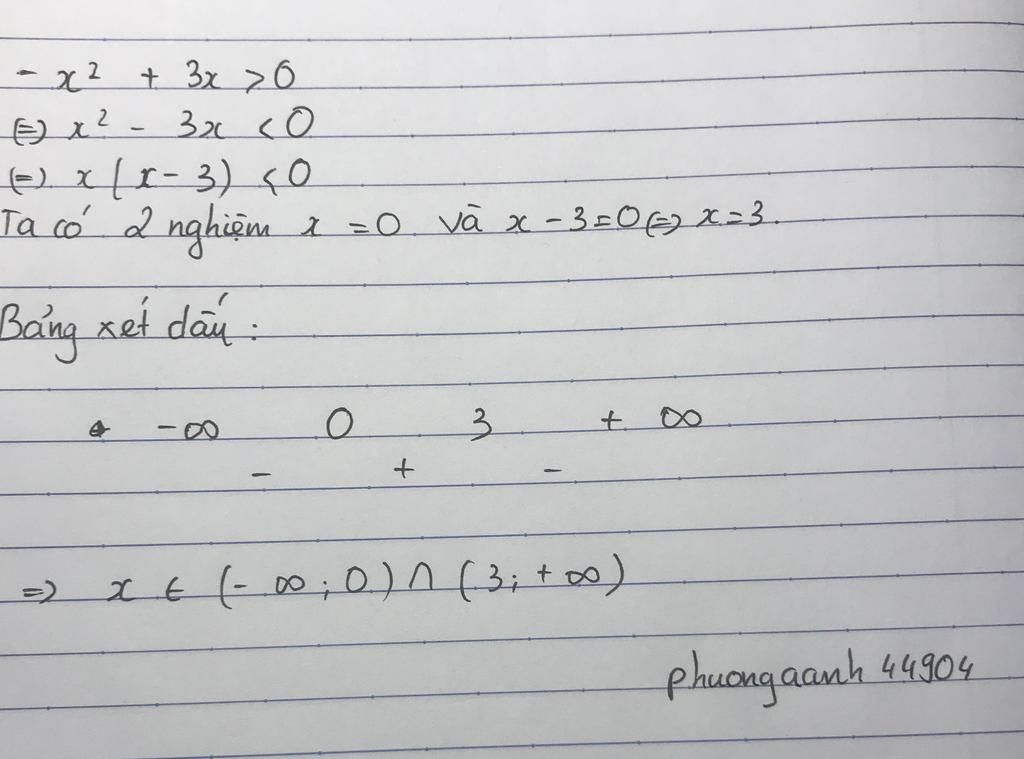 - x² + 3x > 0
(=) x² - 3x < 0
(=) x (x - 3) < 0
Ta có 2 nghiệm x = 0 và x - 3 = 0 (=) x = 3.
Bảng xét dấu :
-∞ 0 3 + ∞
- + -
=> x ∈ (- ∞ ; 0) ∩ (3 ; + ∞)
phuongaanh 44904